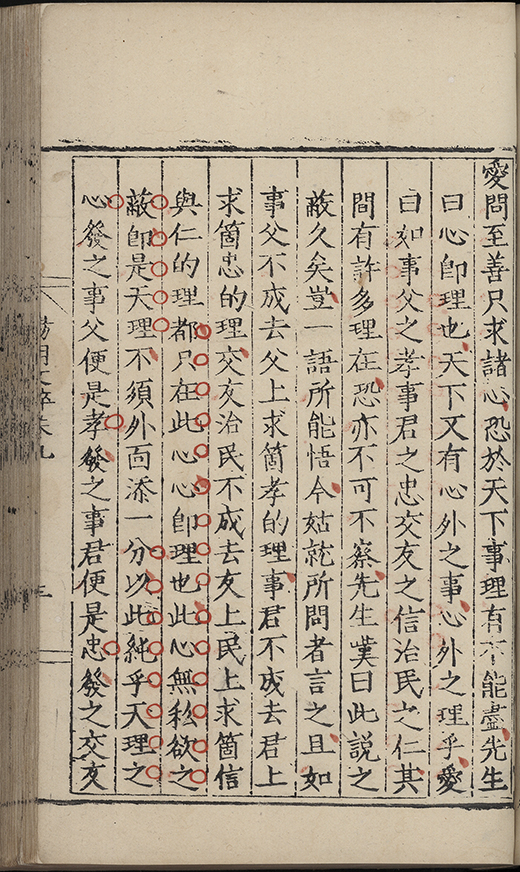 愛問至善只求諸心恐於天下事理有不能盡先生
曰心即理也天下又有心外之事心外之理乎愛
曰如事父之孝事君之忠交友之信治民之仁其
間有許多理在恐亦不可不察先生嘆曰此說之
蔽久矣豈一語所能悟今姑就所問者言之且如
事父不成去父上求箇孝的理事君不成去君上
求箇忠的理交友治民不成去友上民上求箇信
與仁的理都只在此心心即理也此心無私欲之
蔽即是天理不須外面添一分以此純乎天理之
心發之事父便是孝發之事君便是忠發之交友
陽明文粹卷九
三